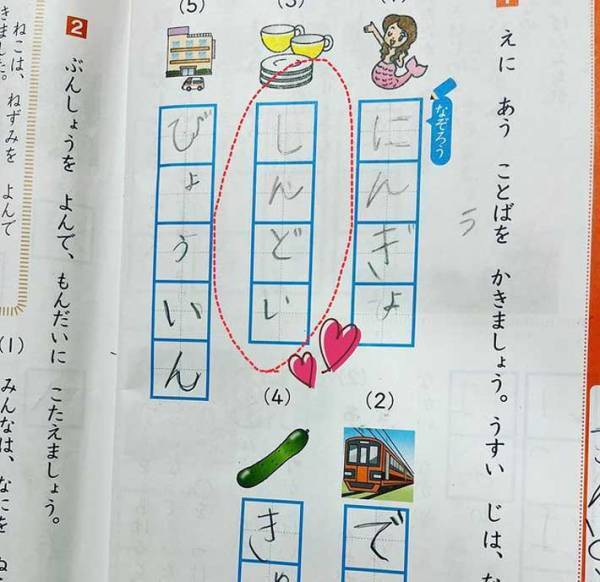 えに あう ことばを かきましょう。うすい じは、な
う
なぞろう
にんぎょ
(2)
で
(3)
しんどい
(4)
き
(5)
びょういん
2 ぶんしょうを よんで、もんだいに こたえましょう。
ねこは、ねずみを よんで
きました。
(1)
みんなは、なにを